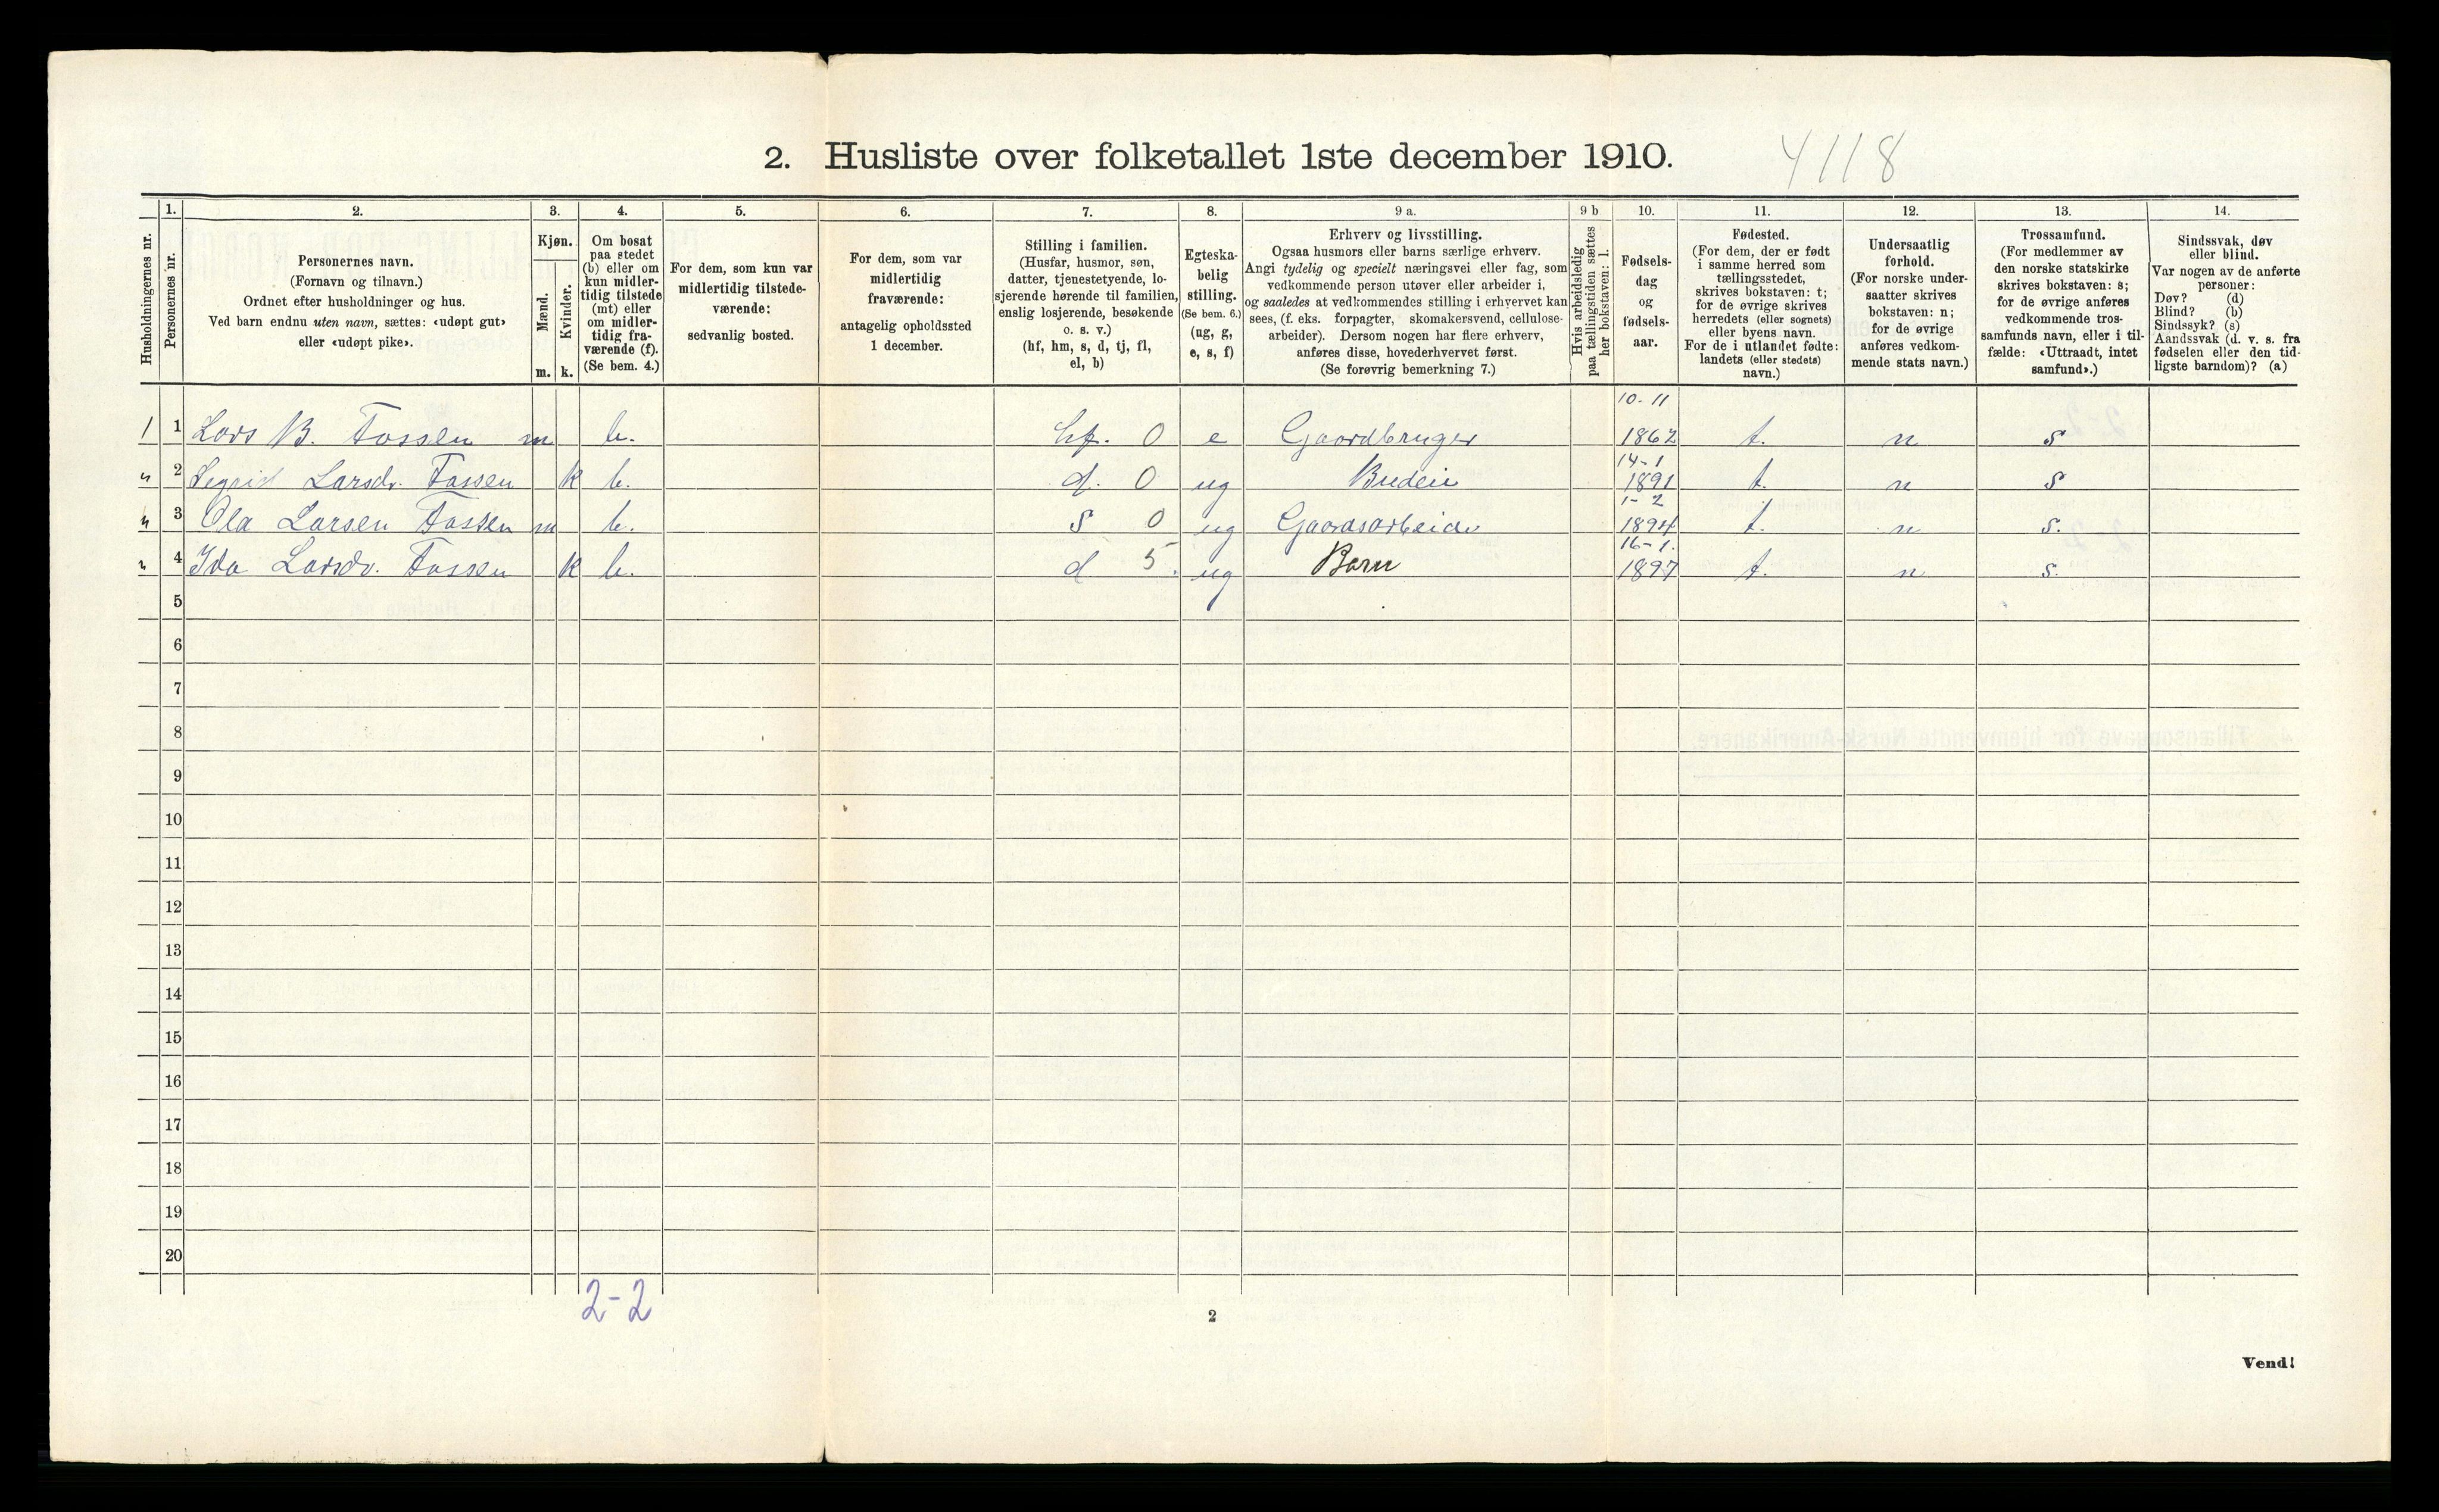 2. Husliste over folketallet 1ste december 1910.
4118
Husholdningernes nr.
1.
Personernes nr.
2.
Personernes navn.
(Fornavn og tilnavn.)
Ordnet efter husholdninger og hus.
Ved barn endnu uten navn, sættes: «udøpt gut»
eller «udøpt pike».
3.
Kjøn.
Mænd.
Kvinder.
m.
k.
4.
Om bosat
paa stedet
(b) eller om
kun midler-
tidig tilstede
(mt) eller
om midler-
tidig fra-
værende (f).
(Se bem. 4.)
5.
For dem, som kun var
midlertidig tilstede-
værende:
sedvanlig bosted.
6.
For dem, som var
midlertidig
fraværende:
antagelig opholdssted
1 december.
7.
Stilling i familien.
(Husfar, husmor, søn,
datter, tjenestetyende, lo-
sjerende hørende til familien,
enslig losjerende, besøkende
o. s. v.)
(hf, hm, s, d, tj, fl,
el, b)
8.
Egteska-
belig
stilling.
(Se bem. 6.)
(ug, g,
e, s, f)
9 a.
Erhverv og livsstilling.
Ogsaa husmors eller barns særlige erhverv.
Angi tydelig og specielt næringsvei eller fag, som
vedkommende person utøver eller arbeider i,
og saaledes at vedkommendes stilling i erhvervet kan
sees, (f. eks. forpagter, skomakersvend, cellulose-
arbeider). Dersom nogen har flere erhverv,
anføres disse, hovederhvervet først.
(Se forøvrig bemerkning 7.)
9 b
Hvis arbeidsledig
paa tællingstiden sættes
her bokstaven: l.
10.
Fødsels-
dag
og
fødsels-
aar.
11.
Fødested.
(For dem, der er født
i samme herred som
tællingsstedet,
skrives bokstaven: t;
for de øvrige skrives
herredets (eller sognets)
eller byens navn.
For de i utlandet fødte:
landets (eller stedets)
navn.)
12.
Undersaatlig
forhold.
(For norske under-
saatter skrives
bokstaven: n;
for de øvrige
anføres vedkom-
mende stats navn.)
13.
Trossamfund.
(For medlemmer av
den norske statskirke
skrives bokstaven: s;
for de øvrige anføres
vedkommende tros-
samfunds navn, eller i til-
fælde: «Uttraadt, intet
samfund».)
14.
Sindssvak, døv
eller blind.
Var nogen av de anførte
personer:
Døv? (d)
Blind? (b)
Sindssyk? (s)
Aandssvak (d. v. s. fra
fødselen eller den tid-
ligste barndom)? (a)
10-11
1 1 Lars B. Fossen m b. hf. 0 e Gaardbruger 1862 t. n s
14-1
" 2 Sigrid Larsdr. Fossen k b. d. 0 ug Budeie 1891 t. n s
1-2
" 3 Ola Larsen Fossen m b. s 0 ug Gaardsarbeider 1894 t. n s.
16-1.
" 4 Ida Larsdr. Fossen k b. d 5. ug Barn 1897 t. n s.
5
6
7
8
9
10
11
12
13
14
15
16
17
18
19
20
2-2
2
Vend!